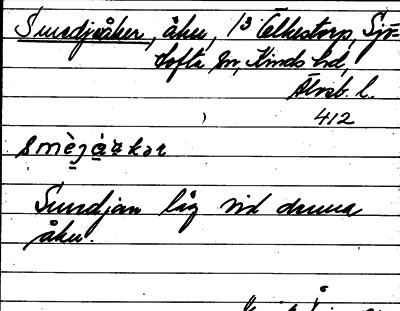 Smedjeåker, åker, 13 Älkestorp, Sjö-
tofta sn, Kinds hd,
Älvsb. l.
412
Smedjan låg vid denna
åker.